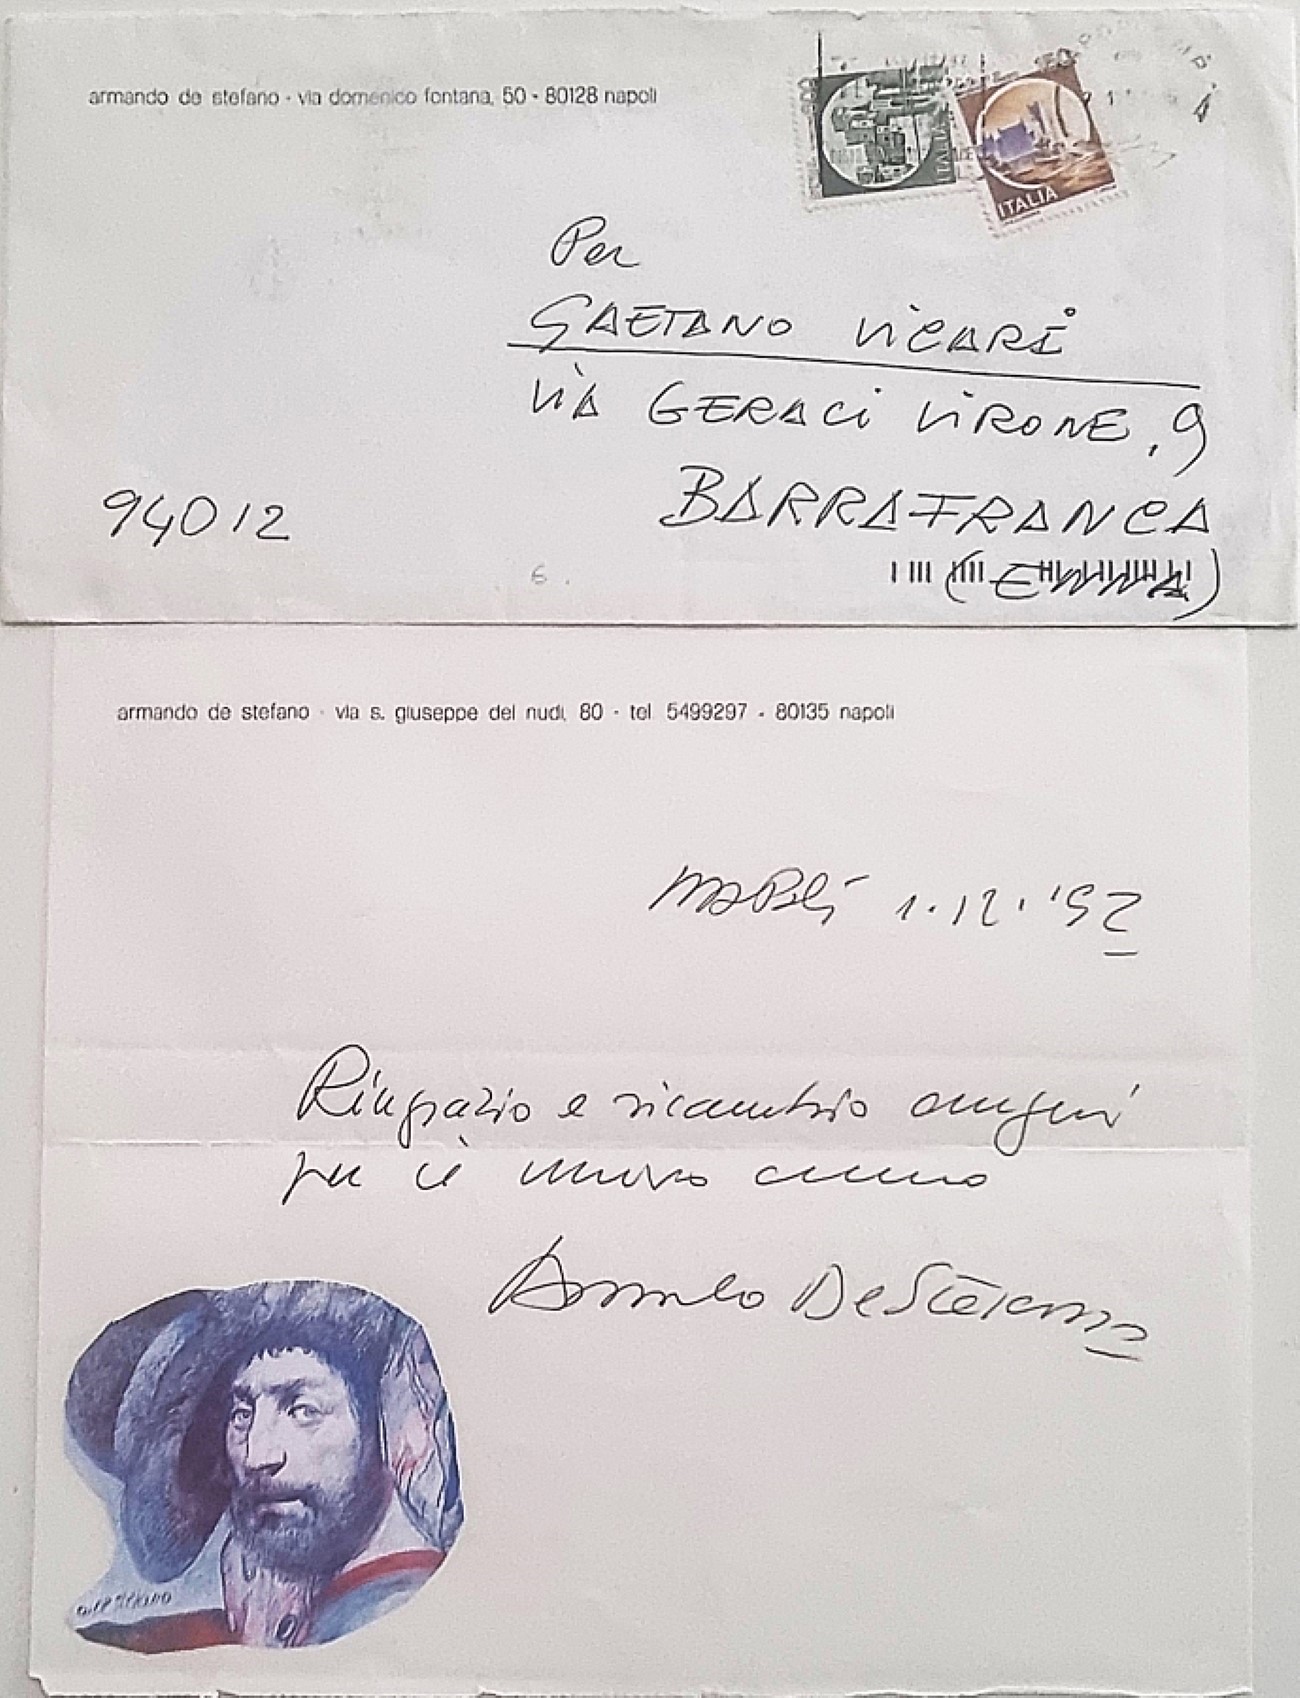 armando de stefano - via domenico fontana, 50 - 80128 napoli
ITALIA
ITALIA
Per
GAETANO VICARI
VIA GERACI VIRONE, 9
94012
BARRAFRANCA
(ENNA)
6.
armando de stefano - via s. giuseppe dei nudi, 80 - tel 5499297 - 80135 napoli
Napoli 1.12.'92
Ringrazio e ricambio auguri
per il nuovo anno
Armando De Stefano
a. de stefano